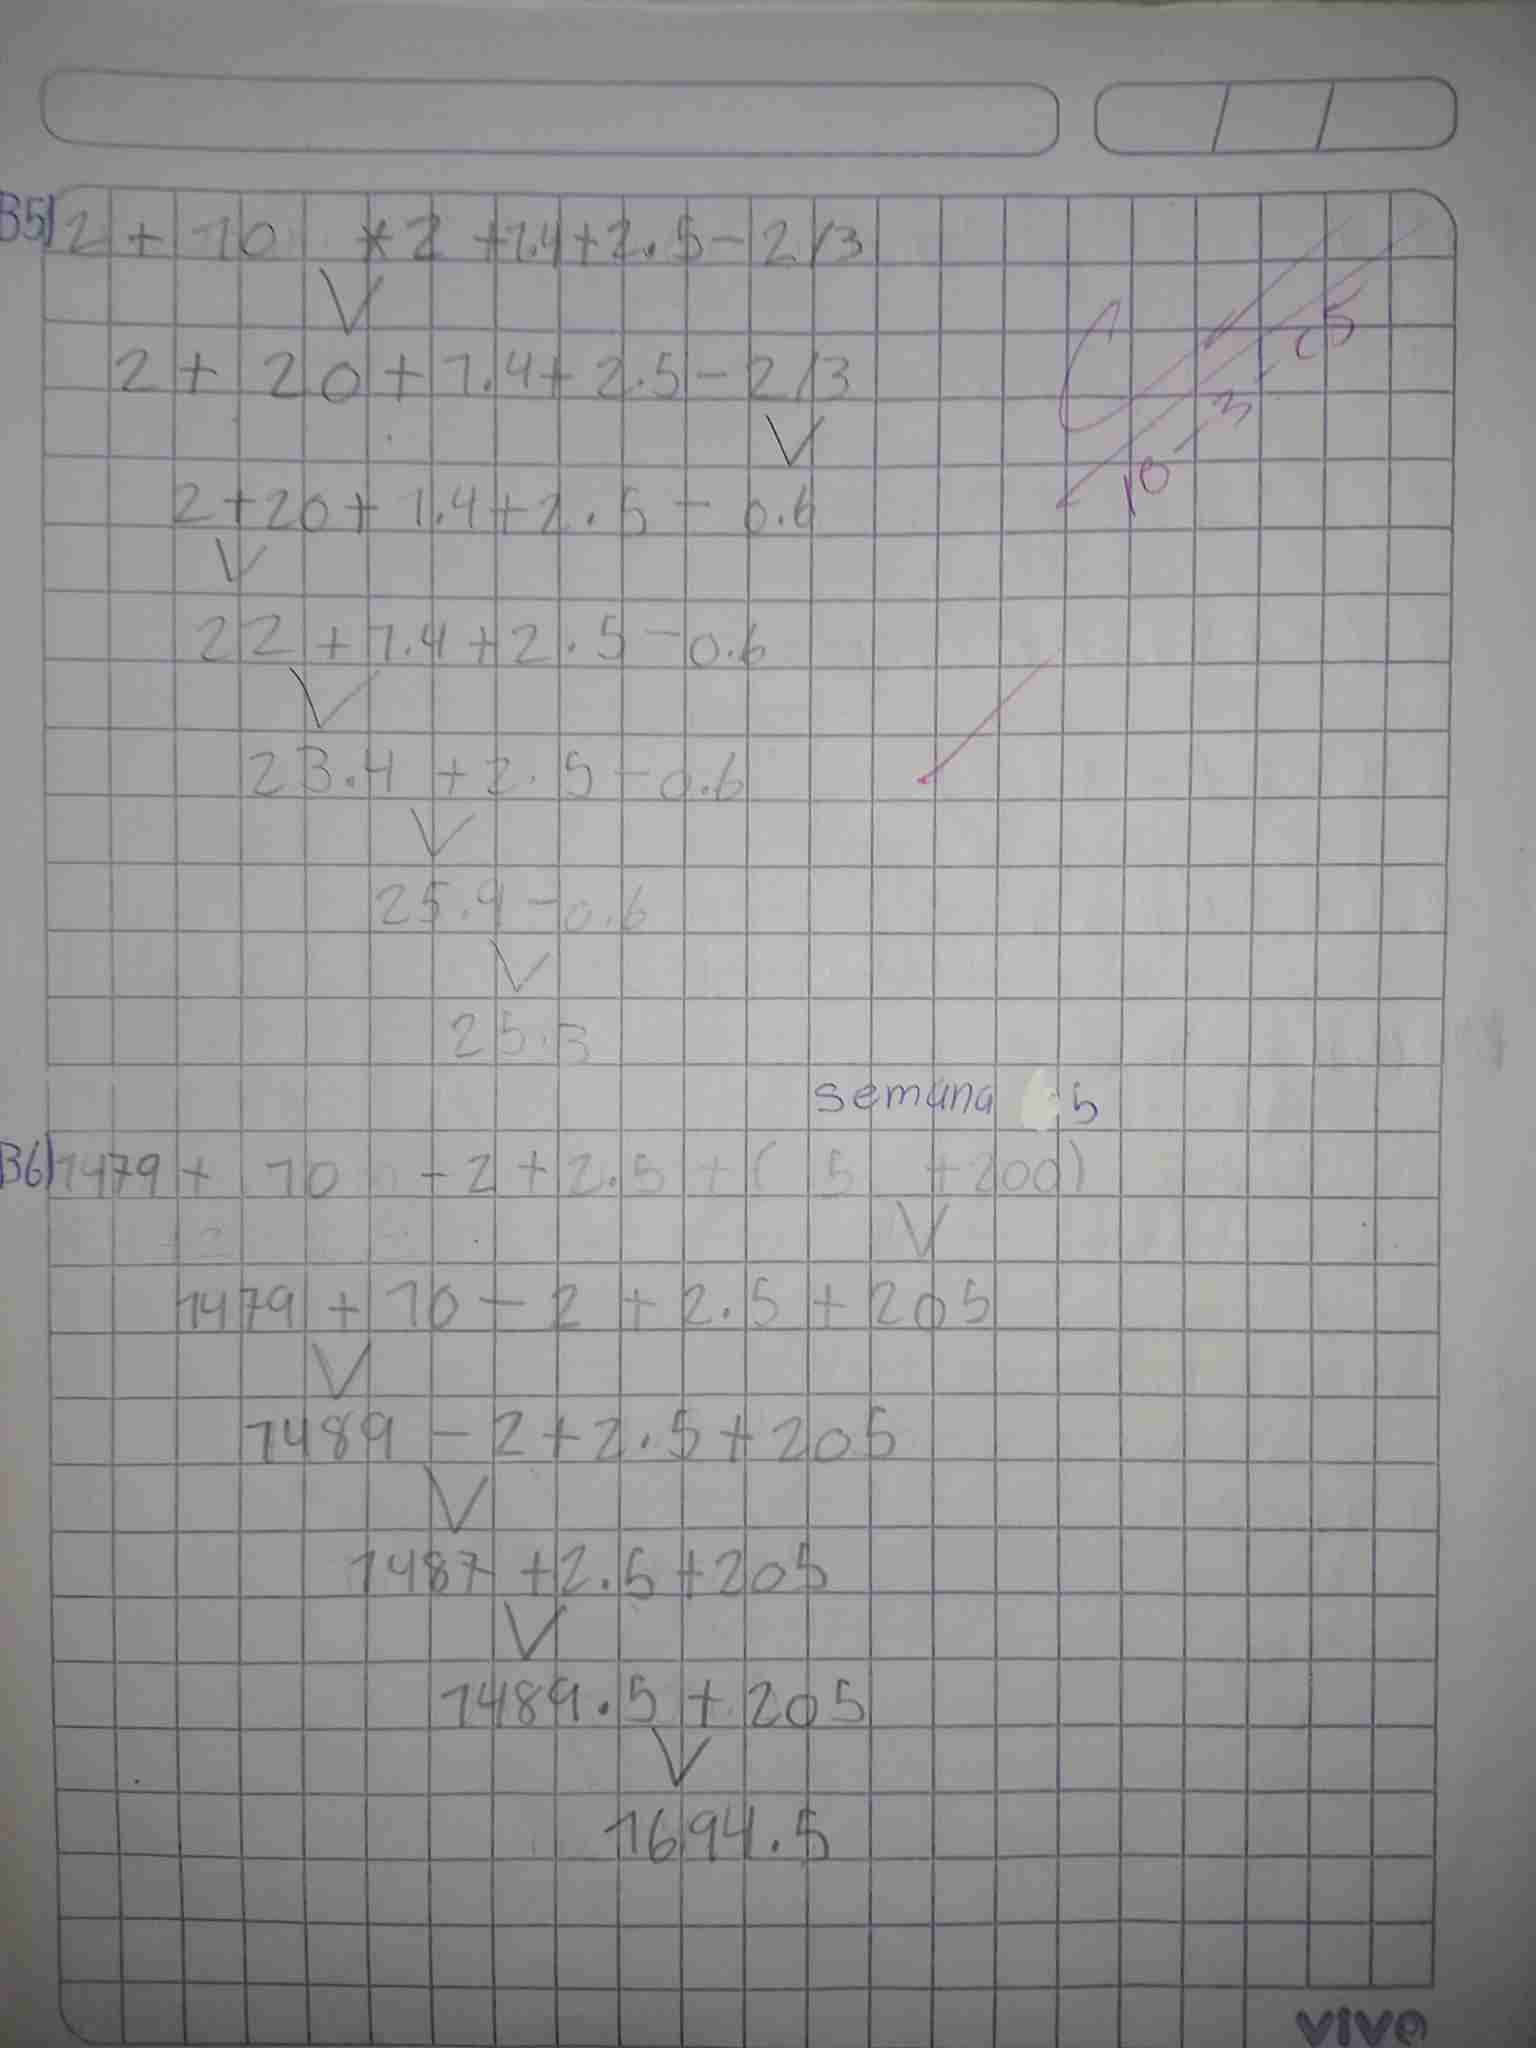 B5) 2 + 10 * 2 + 1.4 + 2.5 - 2/3
2 + 20 + 1.4 + 2.5 - 2/3
2 + 20 + 1.4 + 2.5 - 0.6
22 + 1.4 + 2.5 - 0.6
23.4 + 2.5 - 0.6
25.9 - 0.6
25.3
semana 5
B6) 1479 + 10 - 2 + 2.5 + ( 5 + 200)
1479 + 10 - 2 + 2.5 + 205
1489 - 2 + 2.5 + 205
1487 + 2.5 + 205
1489.5 + 205
1694.5
vivo